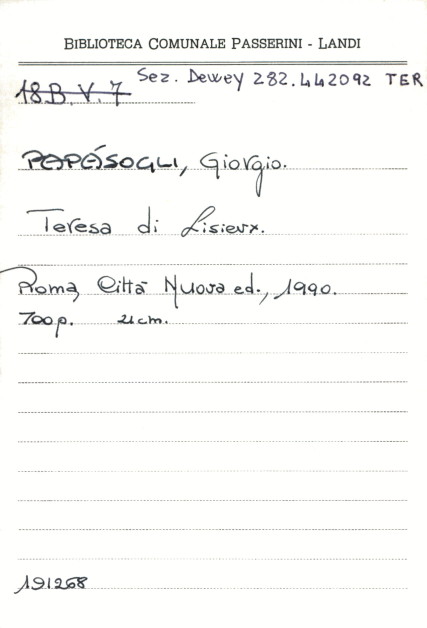 BIBLIOTECA COMUNALE PASSERINI - LANDI
Sez. Dewey 282.442092 TER
18.B.V.7
PAPÁSOGLI, Giorgio.
Teresa di Lisieux.
Roma, Città Nuova ed., 1990.
700p. 21cm.
191268